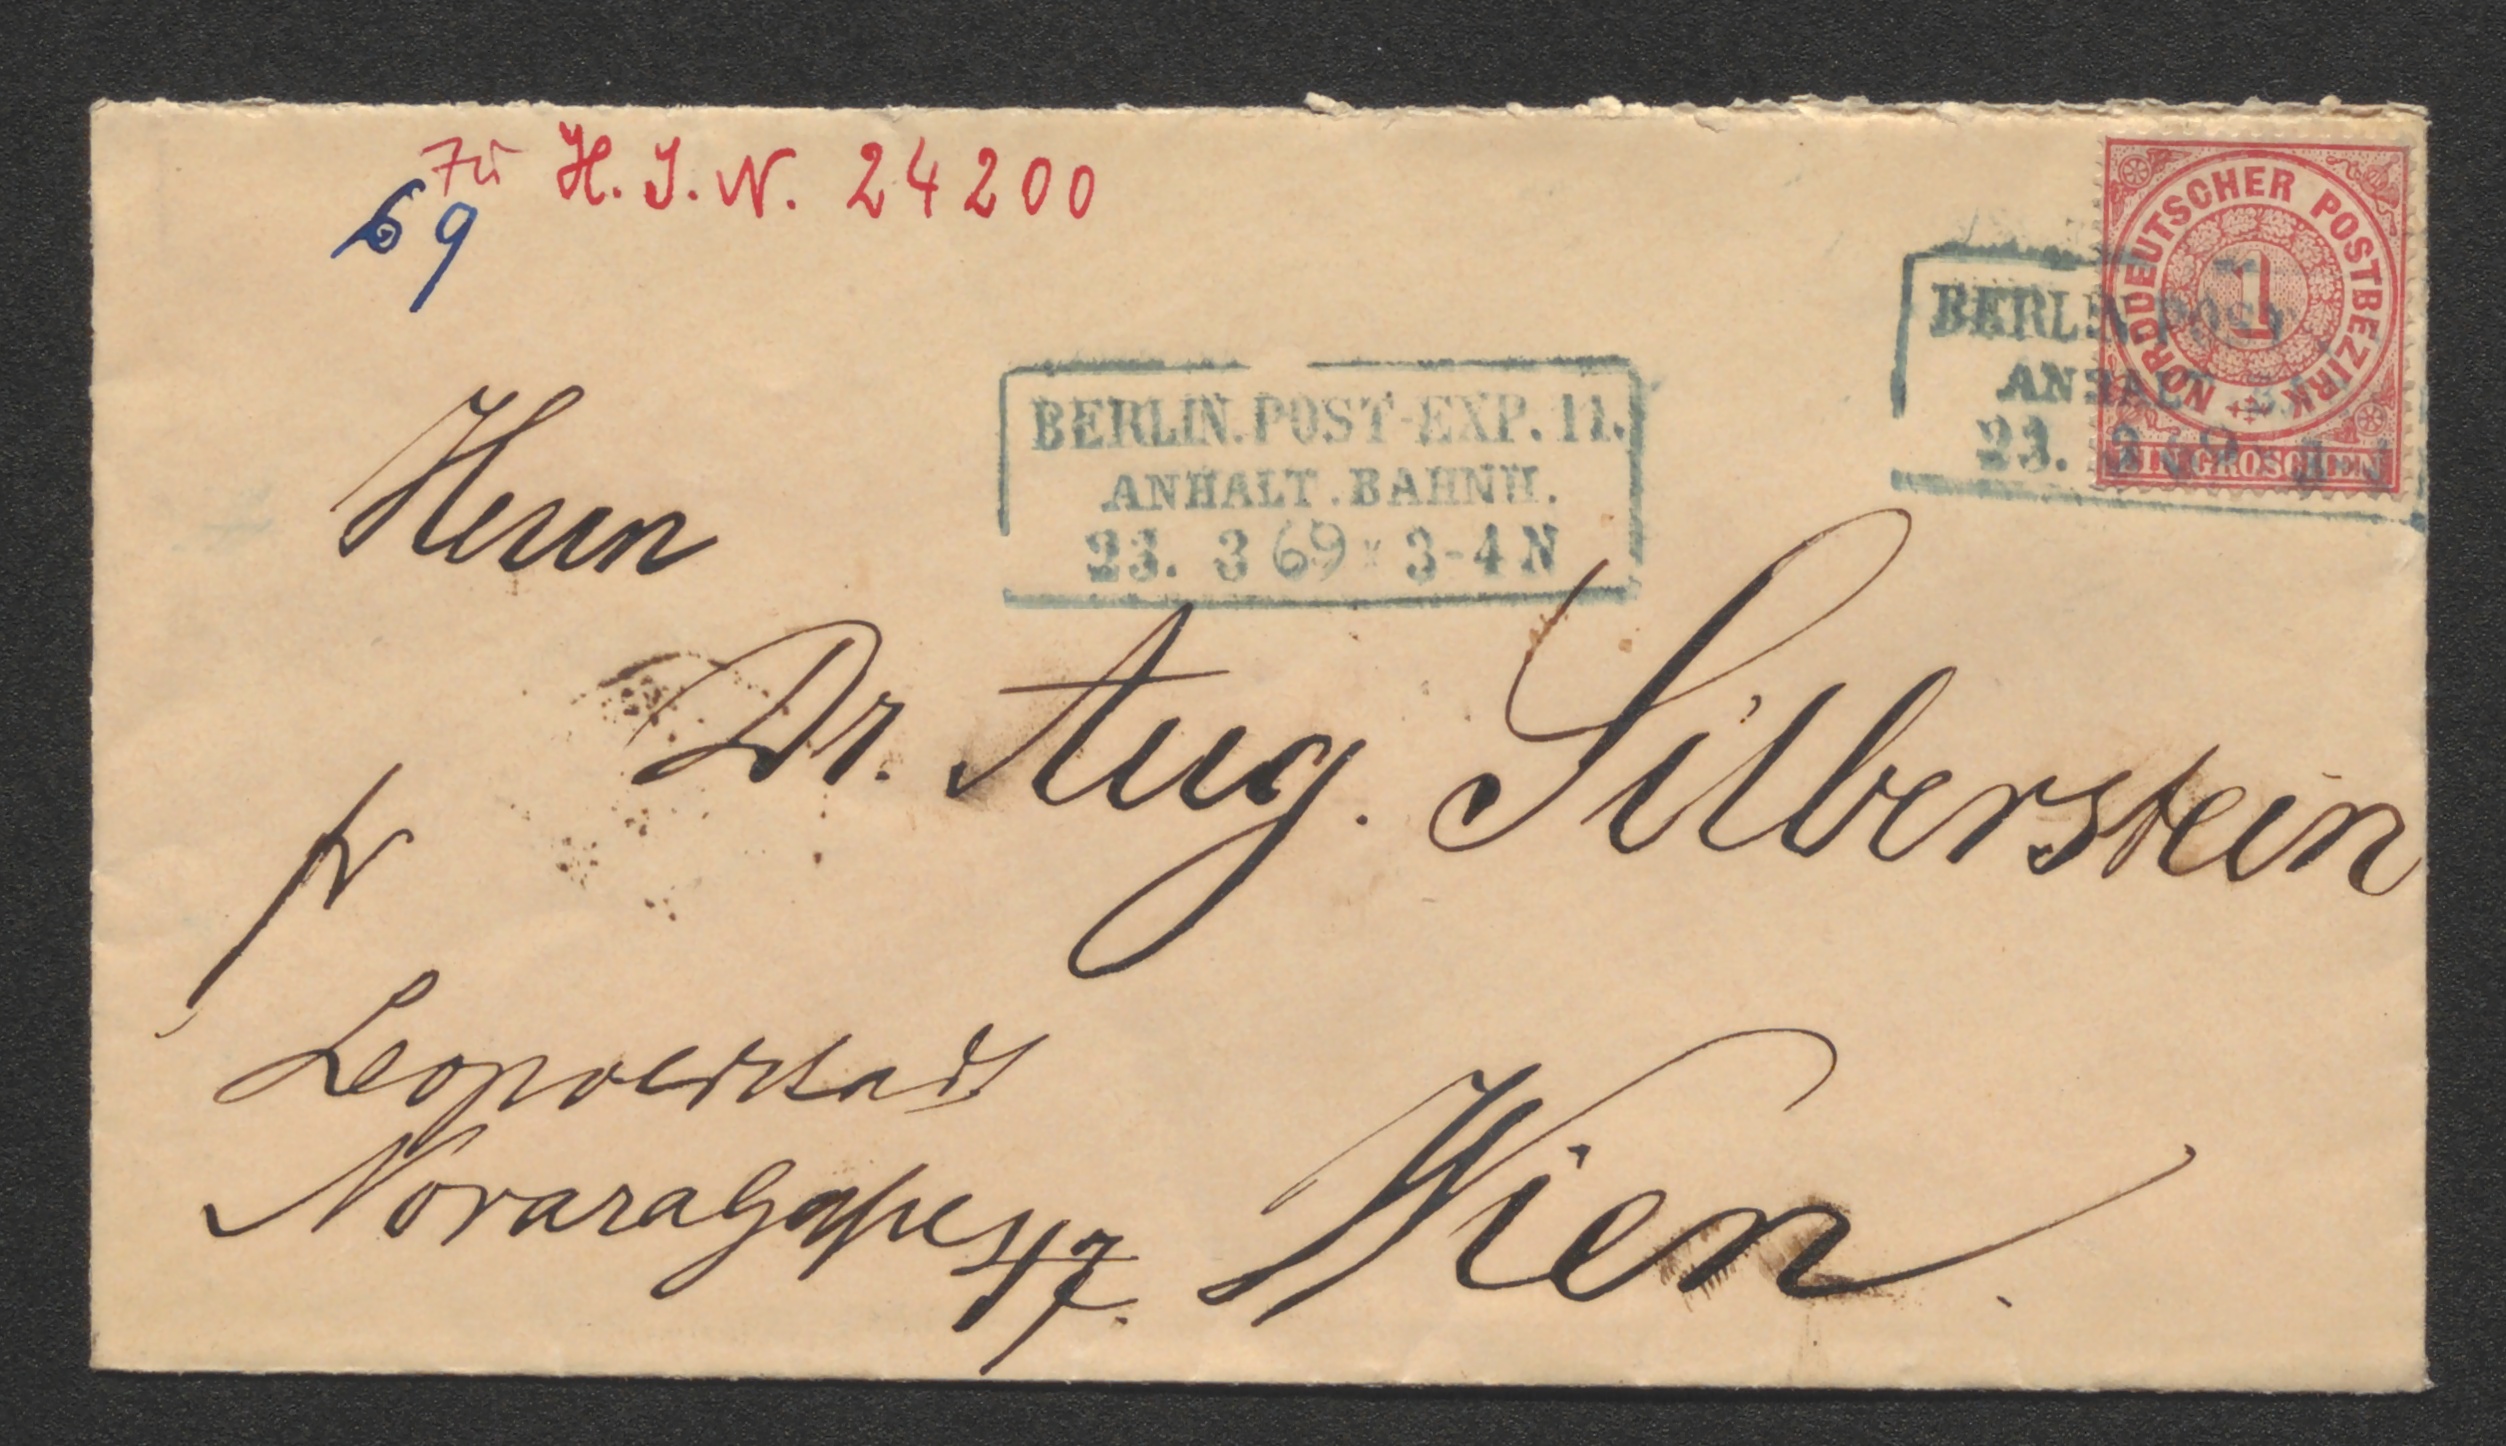 Zu H. I. N. 24200
69
NORDDEUTSCHER POSTBEZIRK
1
EIN GROSCHEN
BERLIN POST
ANHALT. B
23. 3 69 3 N
BERLIN.POST-EXP.11.
ANHALT.BAHNH.
23. 3 69 * 3-4 N
Herrn
Dr. Aug. Silberstein
fr
Leopoldstadt
Novaragasse 47.
Wien.